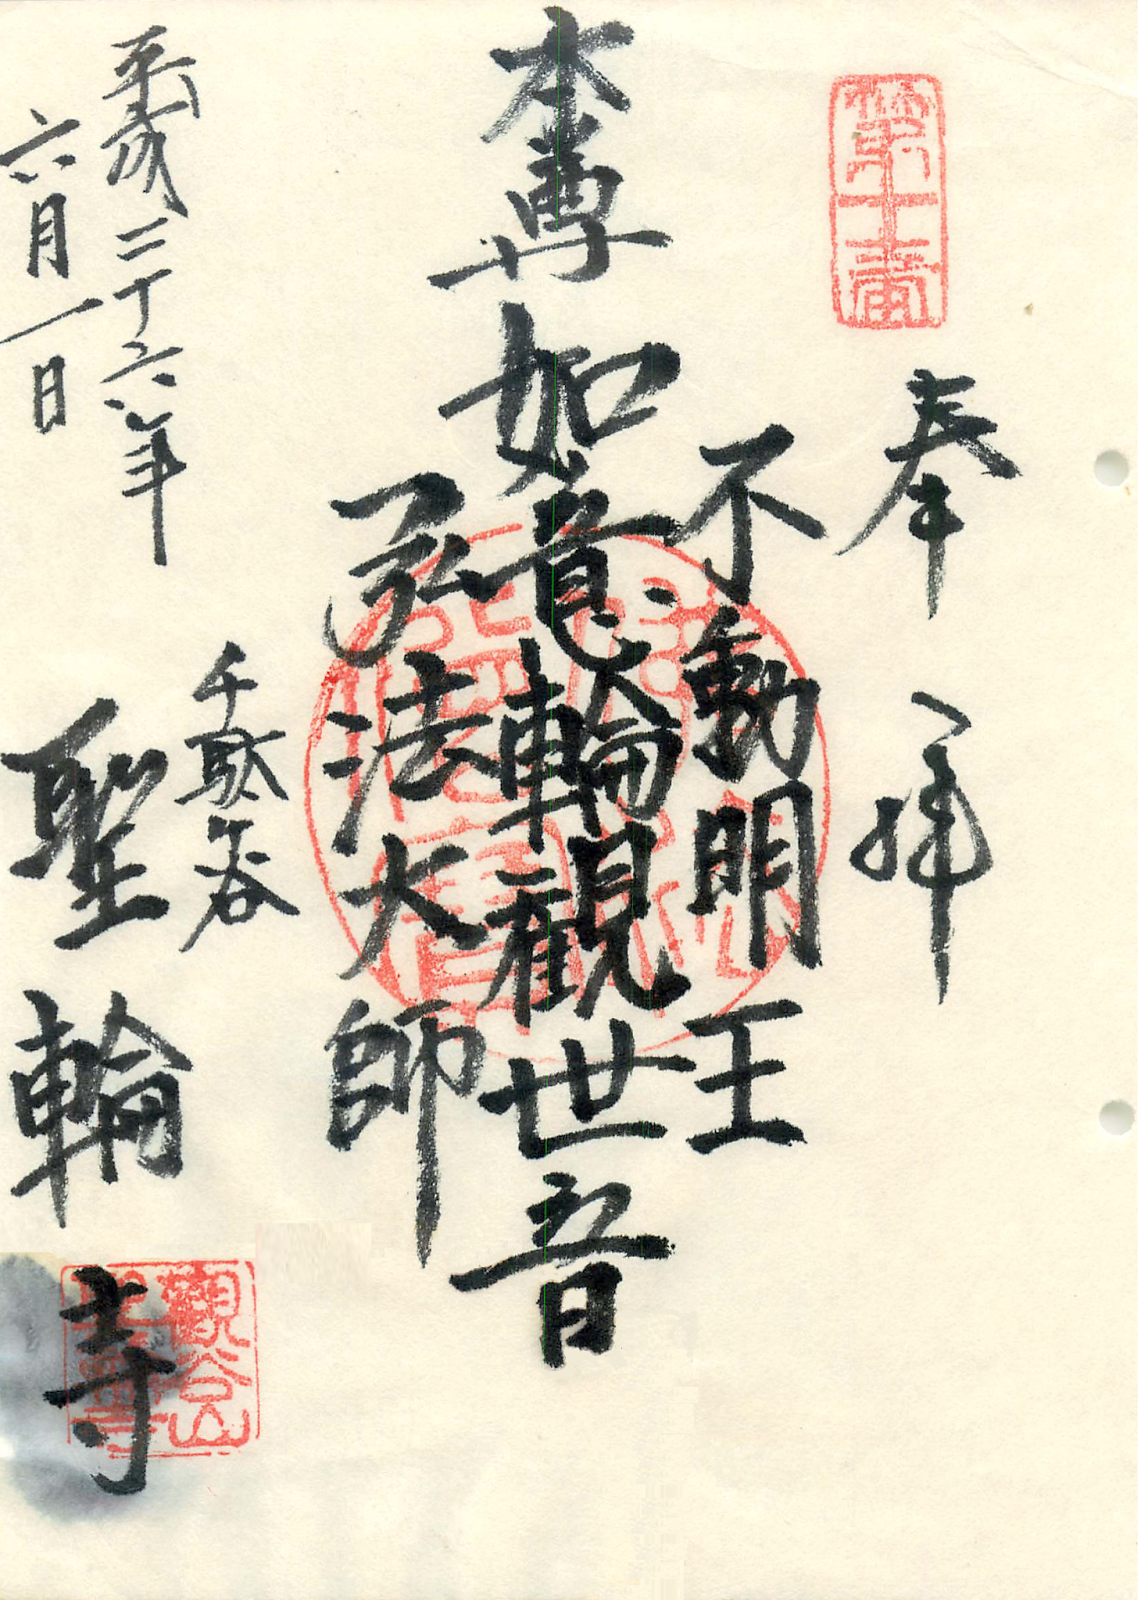 奉拝
第十番
不動明王
本尊如意輪觀世音
弘法大師
千駄ヶ谷
聖輪寺
平成二十六年
六月一日